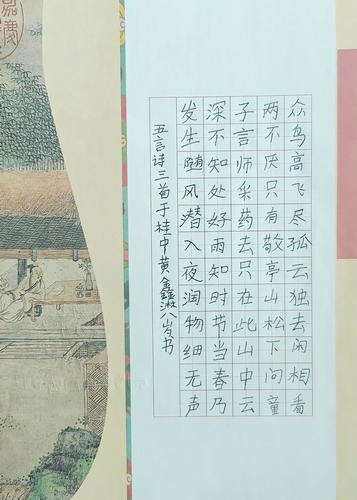 众鸟高飞尽孤云独去闲相看
两不厌只有敬亭山松下问童
子言师采药去只在此山中云
深不知处好雨知时节当春乃
发生随风潜入夜润物细无声
五言诗三首于桂中黄鑫淋八岁书